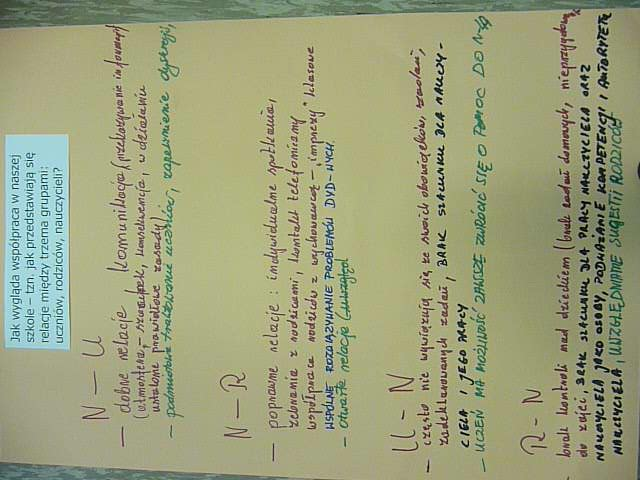 Jak wygląda współpraca w naszej
szkole – tzn. jak przedstawiają się
relacje między trzema grupami:
uczniów, rodziców, nauczycieli?
N – U
– dobre relacje (komunikacja (przekazywanie informacji)
(atmosfera, – szacunek, konsekwencja, w działaniu
ustalone prawidłowe zasady)
– podmiotowe traktowanie uczniów, zapewnienie dyskrecji,
N – R
– poprawne relacje: indywidualne spotkania,
zebrania z rodzicami, kontakt telefoniczny
współpraca rodziców z wychowawcą – „imprezy” klasowe
WSPÓLNE ROZWIĄZYWANIE PROBLEMÓW DYD-WYCH.
– otwarte relacje
U – N
– często nie wywiązują się ze swoich obowiązków, zaleceń,
zadeklarowanych zadań, BRAK SZACUNKU DLA NAUCZY-
CIELA I JEGO PRACY
– UCZEŃ MA MOŻLIWOŚĆ ZAWSZE ZWRÓCIĆ SIĘ O POMOC DO N-LA
R – N
– brak kontroli nad dzieckiem (brak zadań domowych, nieprzygotow.
do zajęć, BRAK SZACUNKU DLA PRACY NAUCZYCIELA ORAZ
NAUCZYCIELA JAKO OSOBY, PODWAŻANIE KOMPETENCJI I AUTORYTETU
NAUCZYCIELA, UWZGLĘDNIANIE SUGESTII RODZICÓW